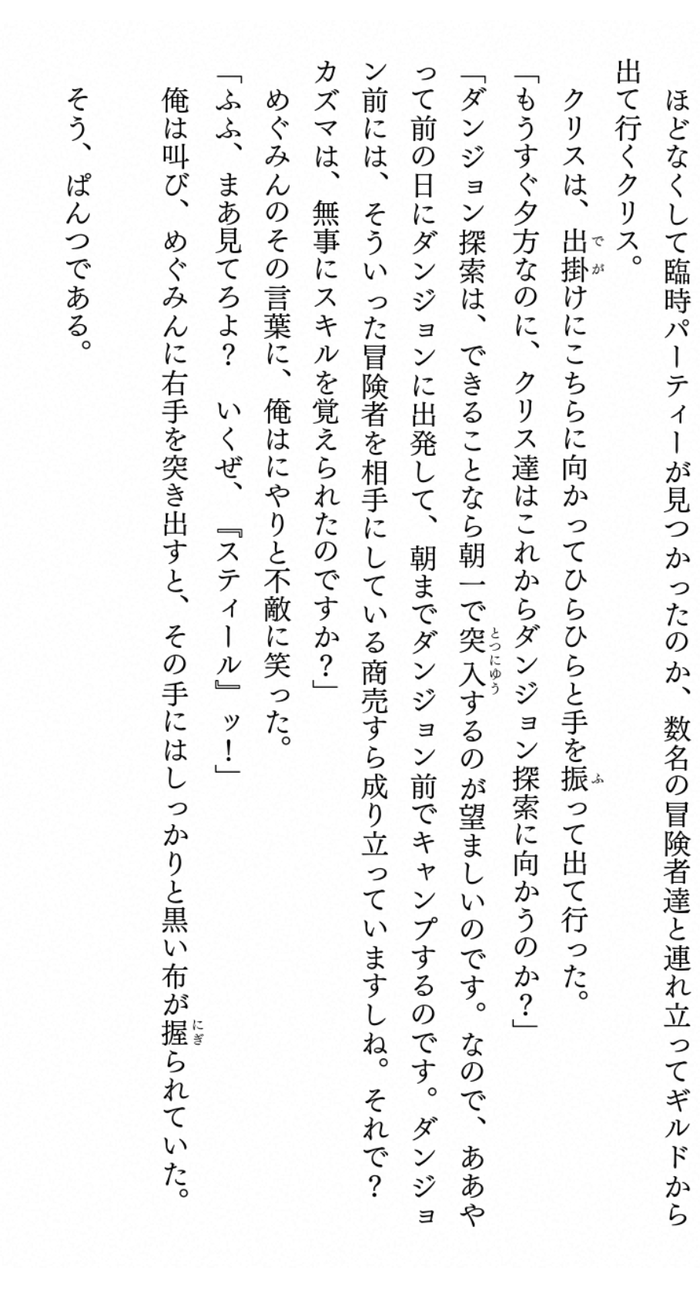 ほどなくして臨時パーティーが見つかったのか、数名の冒険者達と連れ立ってギルドから
出て行くクリス。
　クリスは、出掛けにこちらに向かってひらひらと手を振って出て行った。
「もうすぐ夕方なのに、クリス達はこれからダンジョン探索に向かうのか？」
「ダンジョン探索は、できることなら朝一で突入するのが望ましいのです。なので、ああや
って前の日にダンジョンに出発して、朝までダンジョン前でキャンプするのです。ダンジョ
ン前には、そういった冒険者を相手にしている商売すら成り立っていますしね。それで？
カズマは、無事にスキルを覚えられたのですか？」
　めぐみんのその言葉に、俺はにやりと不敵に笑った。
「ふふ、まあ見てろよ？　いくぜ、『スティール』ッ！」
　俺は叫び、めぐみんに右手を突き出すと、その手にはしっかりと黒い布が握られていた。
　そう、ぱんつである。